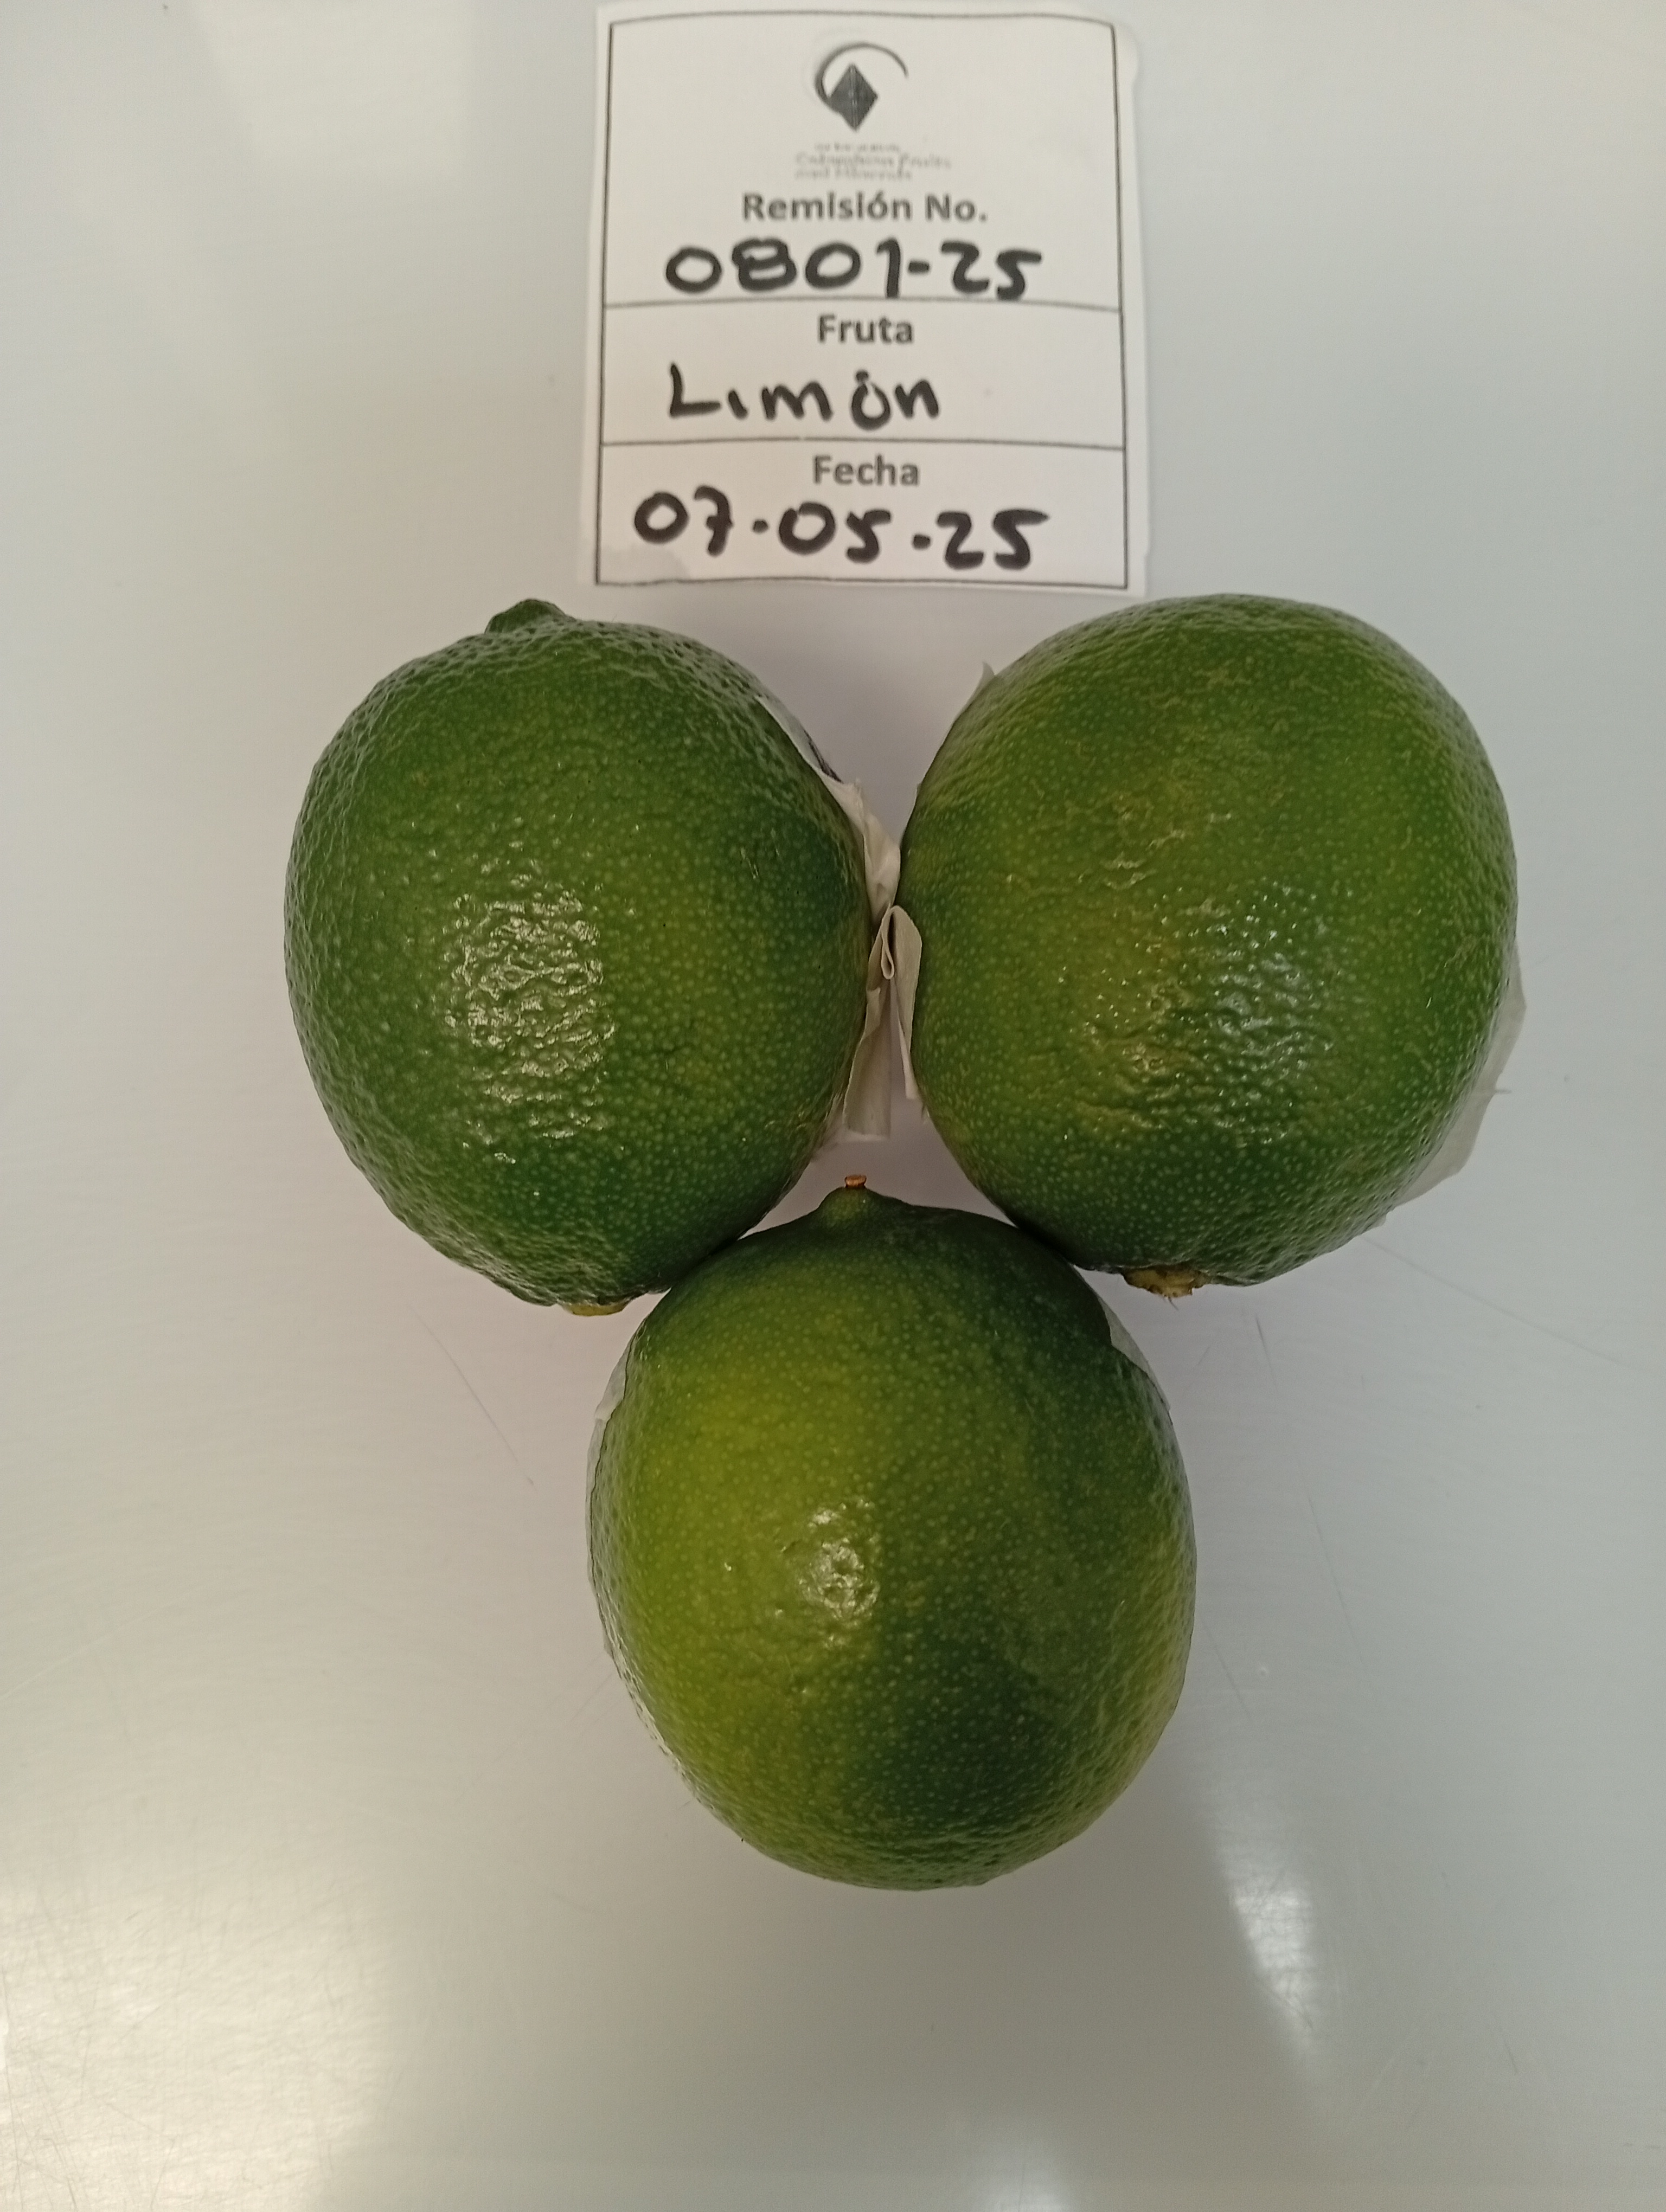 Colombian Fruits
and Minerals
Remisión No.
0801-25
Fruta
Limón
Fecha
07-05-25